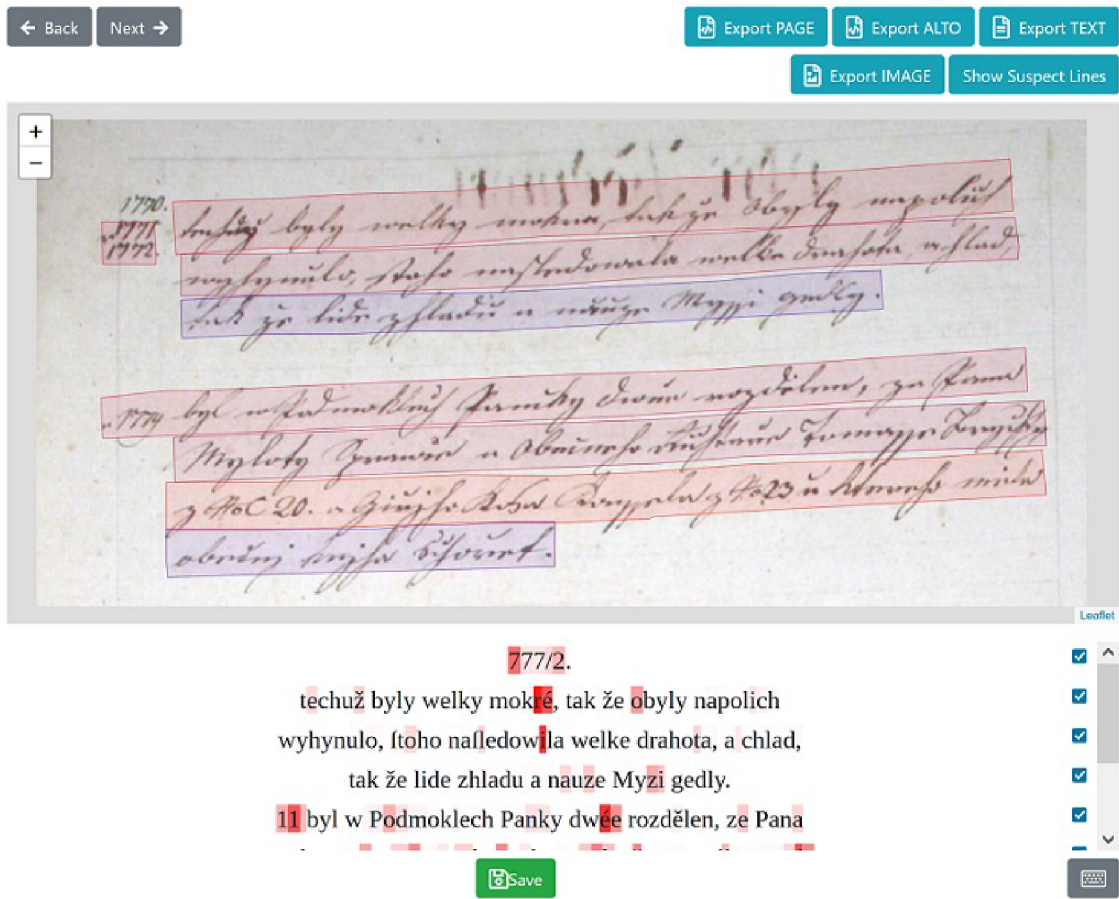 ← Back Next → Export PAGE Export ALTO Export TEXT
Export IMAGE Show Suspect Lines
+
−
1770.
1771
1772.
byly welky mokra, tak že obyly napolich
wyhynulo, stoho nasledowala welke drahota, a hlad,
tak že lide zhladu a nauze Myssi gedly.
1774 byl w Podmoklech Pansky dwur rozdělen, za Pana
Myloty Sprawce a Obecneho Tomasse
z No C 20. a Giřjho z No 23 u ktereho
obecnj
Leaflet
777/2.
techuž byly welky mokré, tak že obyly napolich
wyhynulo, ſtoho naſledowila welke drahota, a chlad,
tak že lide zhladu a nauze Myzi gedly.
11 byl w Podmoklech Panky dwée rozdělen, ze Pana
Save